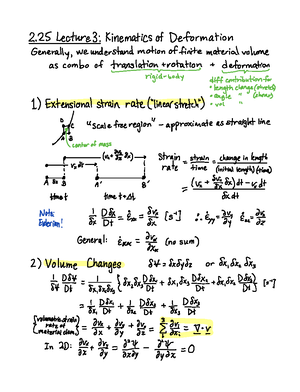 2.25 Lecture 3: Kinematics of Deformation
Generally, we understand motion of finite material volume
as combo of translation + rotation + deformation
rigid-body
diff contribution for
• length change (stretch)
• angle " (shear)
• vol "
1) Extensional strain rate ("linear stretch")
"scale free region" - approximate as straight line
center of mass
Strain rate = strain/time = change in length/(initial length)(time)
(vₓ + ∂vₓ/∂x δx)dt
vₓ dt
= ((vₓ + ∂vₓ/∂x δx)dt - vₓdt)/(δx dt)
A B A' B'
time t time t+Δt
Note: Eulerian!
1/δx Dδx/Dt = ε̇ₓₓ = ∂vₓ/∂x [s⁻¹] ∴ ε̇yy = ∂vy/∂y ε̇zz = ∂vz/∂z
General: ε̇αα = ∂vα/∂xα (no sum)
2) Volume Changes δ∀ = δxδyδz or δx₁ δx₂ δx₃
1/δ∀ Dδ∀/Dt = 1/(δx₁δx₂δx₃) {δx₂δx₃ Dδx₁/Dt + δx₁δx₃ Dδx₂/Dt + δx₁δx₂ Dδx₃/Dt} [s⁻¹]
= 1/δx₁ Dδx₁/Dt + 1/δx₂ Dδx₂/Dt + 1/δx₃ Dδx₃/Dt
[volumetric strain rate of material elem.] = ∂vₓ/∂x + ∂vy/∂y + ∂vz/∂z = Σ ∂vᵢ/∂xᵢ = ∇·v
In 2D: ∂vₓ/∂x + ∂vy/∂y = ∂²ψ/∂x∂y - ∂²ψ/∂y∂x = 0